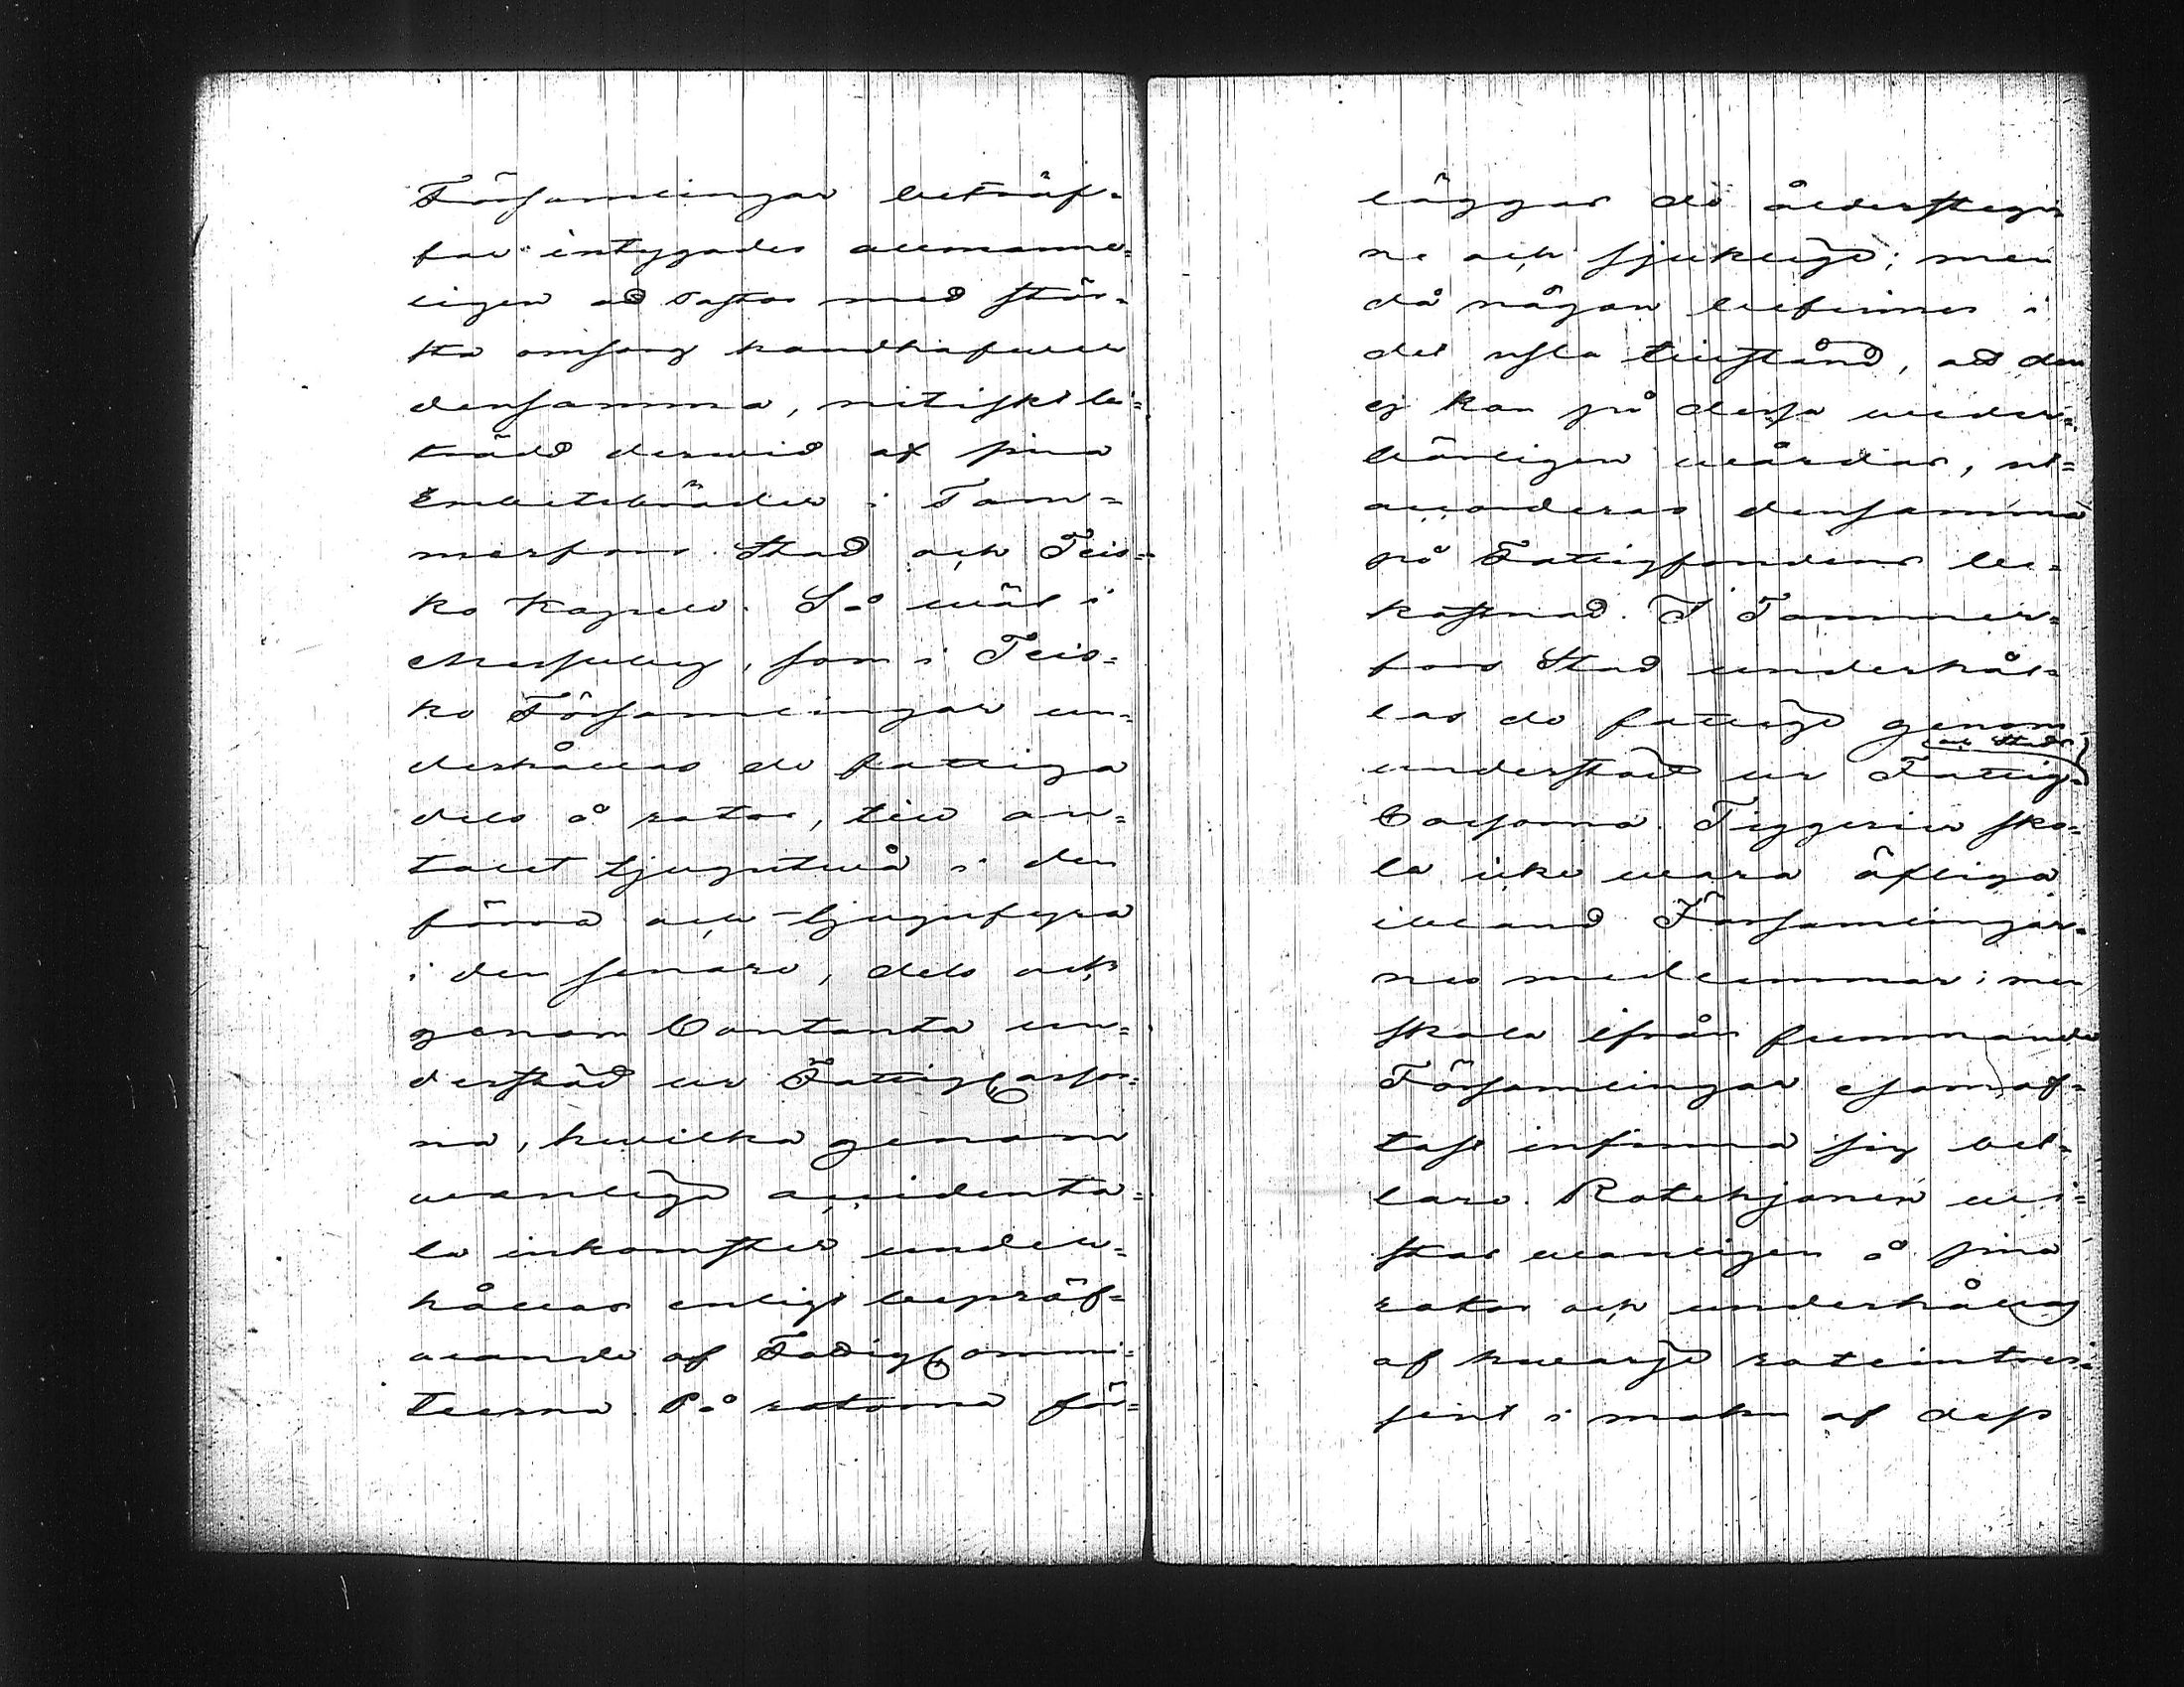 Församlingar beträf-
far intygades allmänne-
ligen att Pastor med stör-
sta omsorg handhafwer
densamma, nitiskt bi-
trädd derwid af sina
Embetsbröder i Tam-
merfors Stad och Teis-
ko Kapell. Så wäl i
Messuby, som i Teis-
ko Församlingar un-
derhållas de fattiga
dels å rotar, till an-
talet tjugutwå i den
förra och tjugufyra
i den senare, dels ock
genom Contanta un-
derstöd ur FattigCassor-
na, hwilka genom
wanliga accidenta-
la inkomster under-
hållas enligt bepröf-
wande af FattigCommi-
teerna. På rotorna för-
läggas de ålderstegn
ne och sjuklige; men
då någon befinnes i
det usla tillstånd, att den
ej kan på dessa weder-
börligen wårdas, ut-
accorderas densamma
på Fattigfondens be-
kostnad. I Tammer-
fors Stad underhål-
las de fattige genom
understöd ur Fattig-
och Stads
Cassorna. Tiggerier sko-
la icke wara öfliga
ibland Församlingar-
nes medlemmar; men
skola ifrån främmande
Församlingar esomof-
tast infinna sig bet-
lare. Rotehjonen wi-
stas wanligen å sina
rotar och underhållas
af hwarje roteintres-
sent i mohn af dess